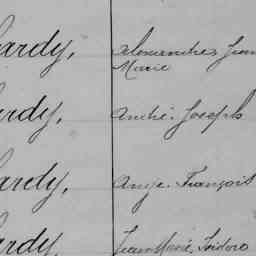 ardy, Alexandre Jean
Marie
rdy, André Joseph
ardy, Ange François
ardy, Jean Marie, Isidore